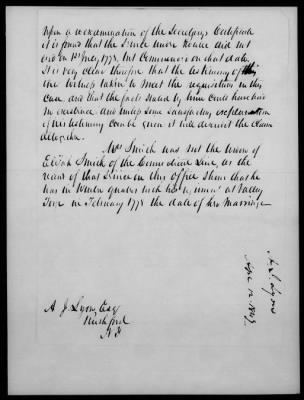 Upon a reexamination of the Secretary's Certificate
it is found that the Line under notice did not
end on 1st July, 1778, but commenced on that date.
It is very clear therefore that the testimony of the
one witness taken to meet the requisition in this
case and that the facts stated by him could have had
no existence and unless some satisfactory explanation
of his testimony can be given it will discredit the claim
altogether.
Mrs Smith was not the widow of
Elijah Smith of the Connecticut Line, as the
records of that Line in this Office shows that he
was in Winter quarters with his regiment at Valley
Forge in February 1778 the date of her Marriage
A. J. Lyon, Esq
Rushford
N. Y.
A. J. Lyon
Apr 12 1849